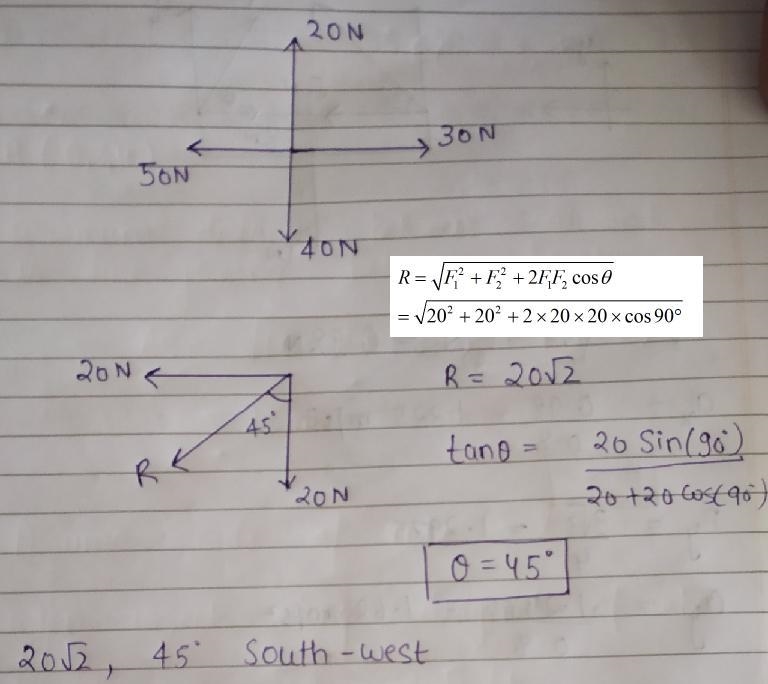 20N
30N
50N
40N
R = √F₁² + F₂² + 2F₁F₂ cos θ
= √20² + 20² + 2 × 20 × 20 × cos 90°
20N
R = 20√2
45°
tanθ = 20 Sin(90°) / 20+20 Cos(90°)
R
20N
θ = 45°
20√2, 45° South-west